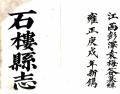 江西彭澤袁梅谷纂修
雍正庚戌年新鐫
石樓縣志